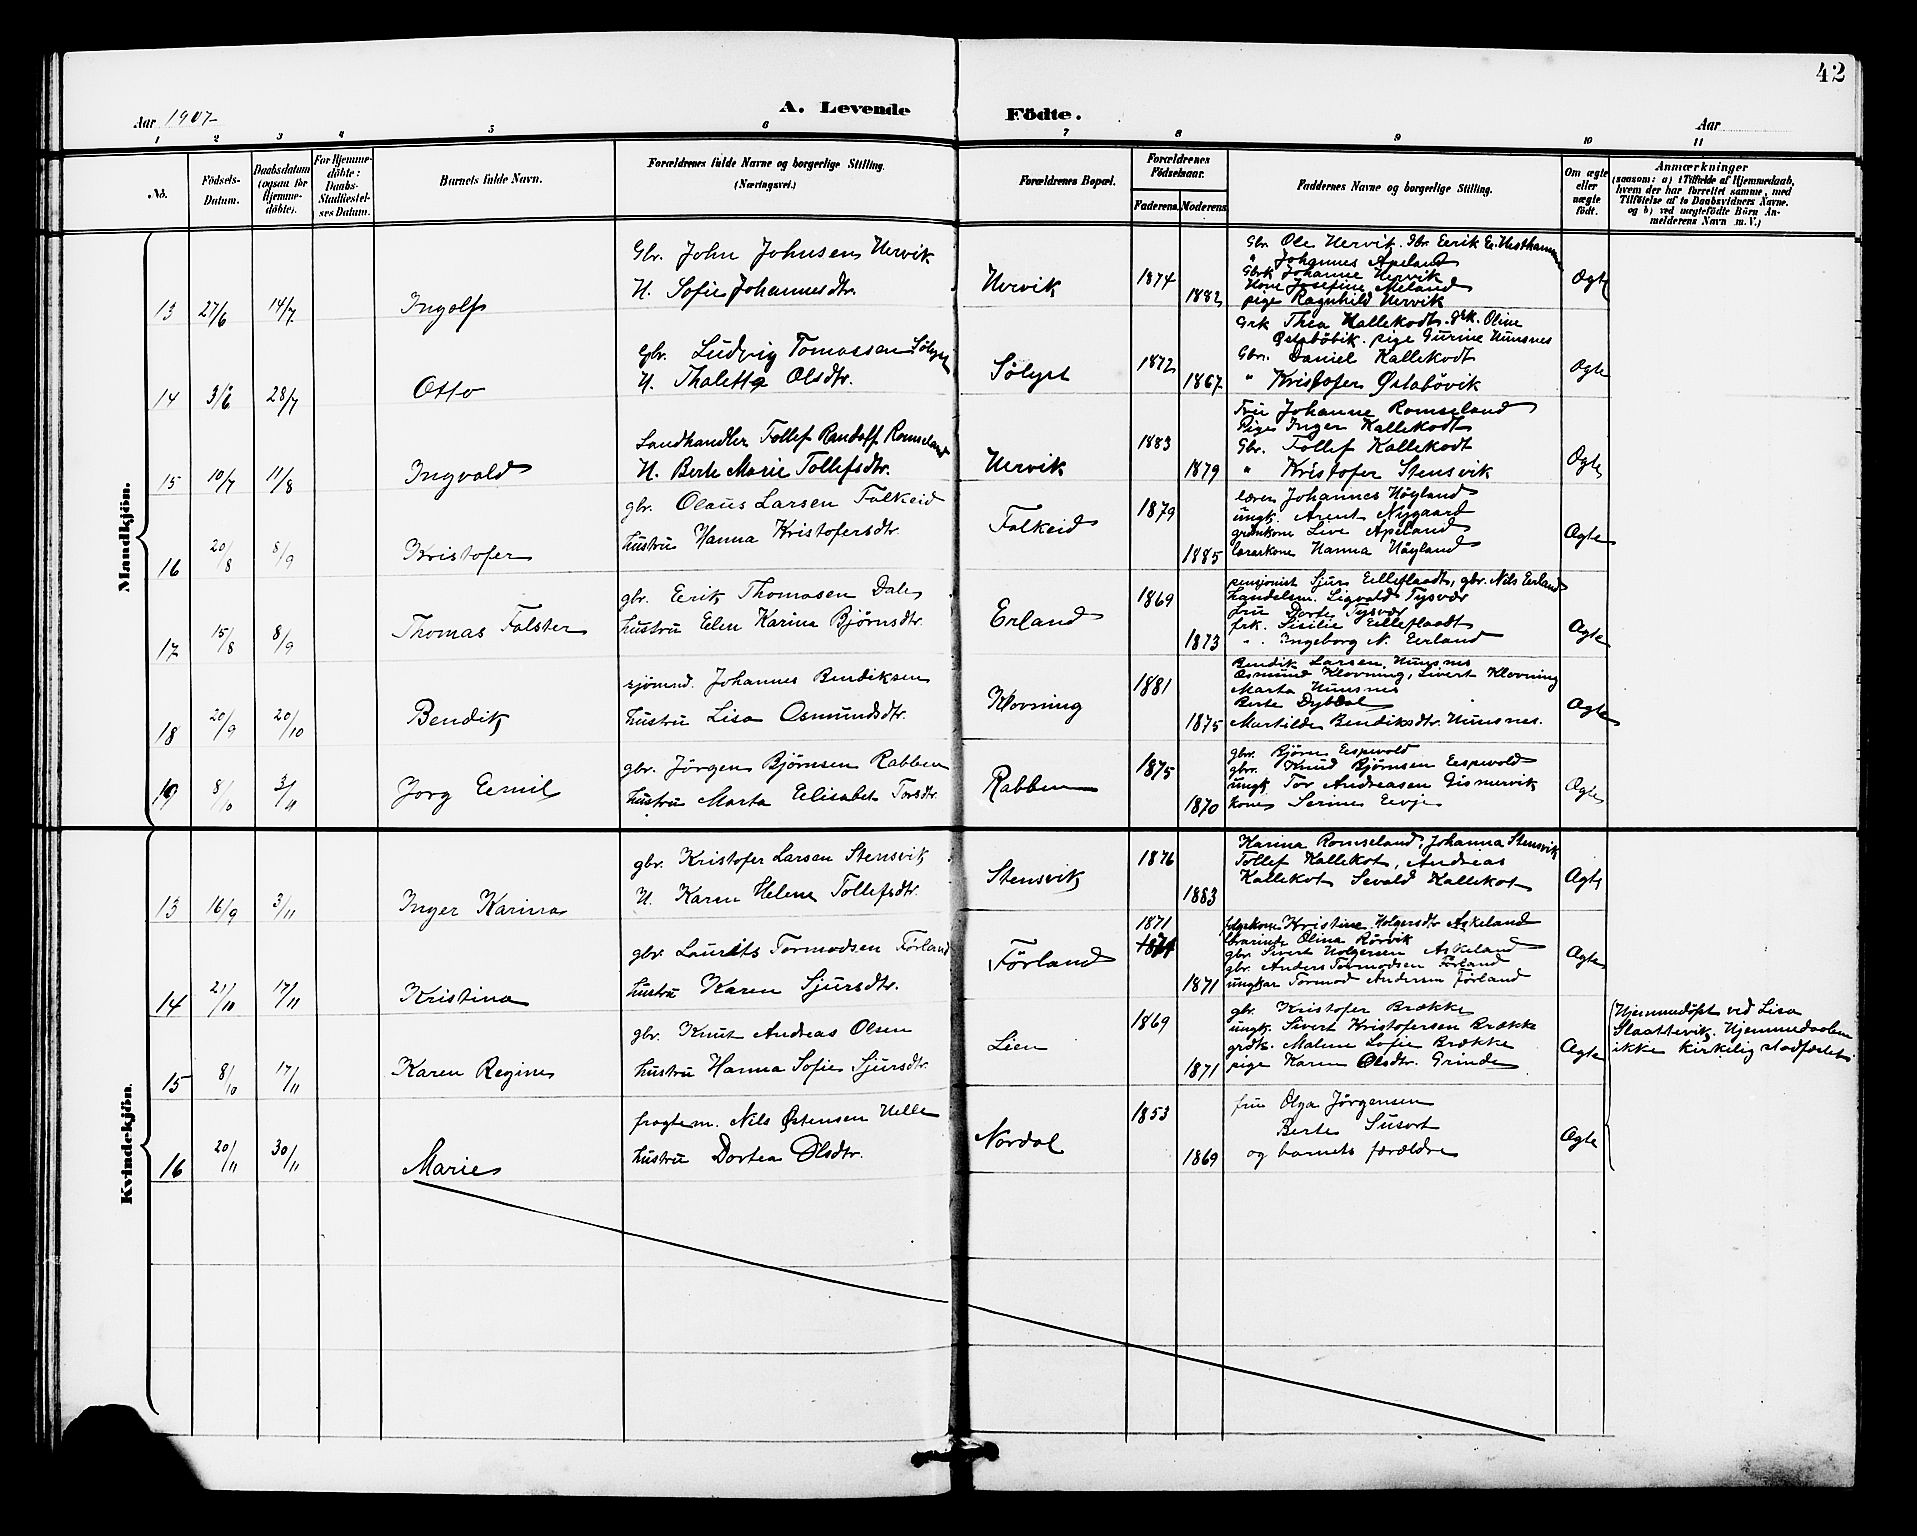 42
Aar 1907
A. Levende Födte.
Aar
1 2 3 4 5 6 7 8 9 10 11
No.
Födsels-Datum.
Daabsdatum (ogsaa for Hjemme-döbte).
For Hjemme-döbte: Daabs-Stadfæstel-ses Datum.
Barnets fulde Navn.
Forældrenes fulde Navne og borgerlige Stilling.
(Næringsvei.)
Forældrenes Bopæl.
Forældrenes Födselsaar.
Faderens. Moderens.
Faddernes Navne og borgerlige Stilling.
Om ægte eller uægte födt.
Anmærkninger
(saasom: a) i Tilfælde af Hjemmedaab,
hvem der har forrettet samme, med
Tilföielse af to Daabsvidners Navne.
og b) ved uægtefödte Börn An-
melderens Navn m. V.)
Mandkjön.
13 27/6 14/7 Ingolf
Gbr. John Johnsen Hervik
H. Sofie Johannesdtr.
Hervik 1874 1882
Gbr. Ole Hervik. Gbr. Eerik E.
" Johannes Apeland
Gbrk Johanne Hervik
Kone Josefine Meland
pige Ragnhild Hervik
Ægte
14 3/6 28/7 Otto
Gbr. Ludvig Tomassen Sølyst
H. Thalette Olsdtr.
Sölyst 1872 1867
Grk Thea Kallekodt. grk. Oline
Østabövik. pige Gurine Hunsnes
Gbr. Daniel Kallekodt
" Kristofer Østabövik
Ægte
15 10/7 11/8 Ingvald
Landhandler Tollef Randolf Romseland
H. Berte Marie Tollefsdtr.
Hervik 1883 1879
Fru Johanne Romseland
Pige Inger Kallekodt
Gbr. Tollef Kallekodt
" Kristofer Stensvik
Ægte
16 20/8 8/9 Kristofer
gbr. Olaus Larsen Falkeid
hustru Hanna Kristofersdtr.
Falkeid 1879 1885
lærer Johannes Höyland
ungk. Arent Nygaard
grdmkone Live Apeland
lærerkone Hanna Höyland
Ægte
17 15/8 8/9 Thomas Falster
gbr. Eerik Thomasen Dale
hustru Elen Karina Bjørnsdtr.
Erland 1869 1873
pensjonist Sjurs Eilleflaadt, gbr. Nils Eerland
handelsm. Sigvald Tysvær
fru Dorte Tysvær
frk. Sisilie Eilleflaadt
" Ingeborg N. Eerland
Ægte
18 20/9 20/10 Bendik
sjömnd. Johannes Bendiksen
hustru Lisa Osmundsdtr.
Klovning 1881 1875
Bendik Larsen Hunsnes
Osmund Klovning, Sivert Klovning
Marta Hunsnes
Berte Dybdal
Martilde Bendiksdtr. Hunsnes.
Ægte
19 8/10 3/11 Jorg Eemil
gbr. Jørgen Bjørnsen Rabben
hustru Marta Eelisabet Torsdtr.
Rabben 1875 1870
gbr. Bjørn Eespevold
gbr. Knud Bjørnsen Eespevold
ungk. Tor Andreasen Gismervik
kone Serine Eevje
Ægte
Kvindekjön.
13 16/9 3/11 Inger Karina
gbr. Kristofer Larsen Stensvik
H. Karen Helene Tollefsdtr.
Stensvik 1876 1883
Karina Romseland, Johanna Stensvik
Tollef Kallekot, Andreas
Kallekot Sevald Kallekot
Ægte
14 21/10 17/11 Kristina
gbr. Laurits Tormodsen Førland
hustru Karen Sjursdtr.
Förland 1871 1871
Kristine Holgersdtr Askeland
Olina Rörvik
gbr Sivert Holgersen Askeland
gbr. Anders Tormodsen Førland
ungkar Tormod Andersen Førland
Ægte
15 8/10 17/11 Karen Regine
gbr. Knut Andreas Olsen
hustru Hanna Sofie Sjursdtr.
Lien 1869 1871
gbr. Kristofer Brække
ungk. Sivert Kristofersen Brække
grdk. Malene Sofie Brække
pige Karen Olsdtr. Grinde
Ægte
Hjemmedöpt ved Lisa
Slaattevik. Hjemmedaaben
ikke kirkelig stadfæstet.
16 20/11 30/11 Marie
fragtem. Nils Østensen Helle
hustru Dortea Olsdtr.
Nordal 1853 1869
fru Olga Jørgensen
Berte Susort
og barnets forældre
Ægte